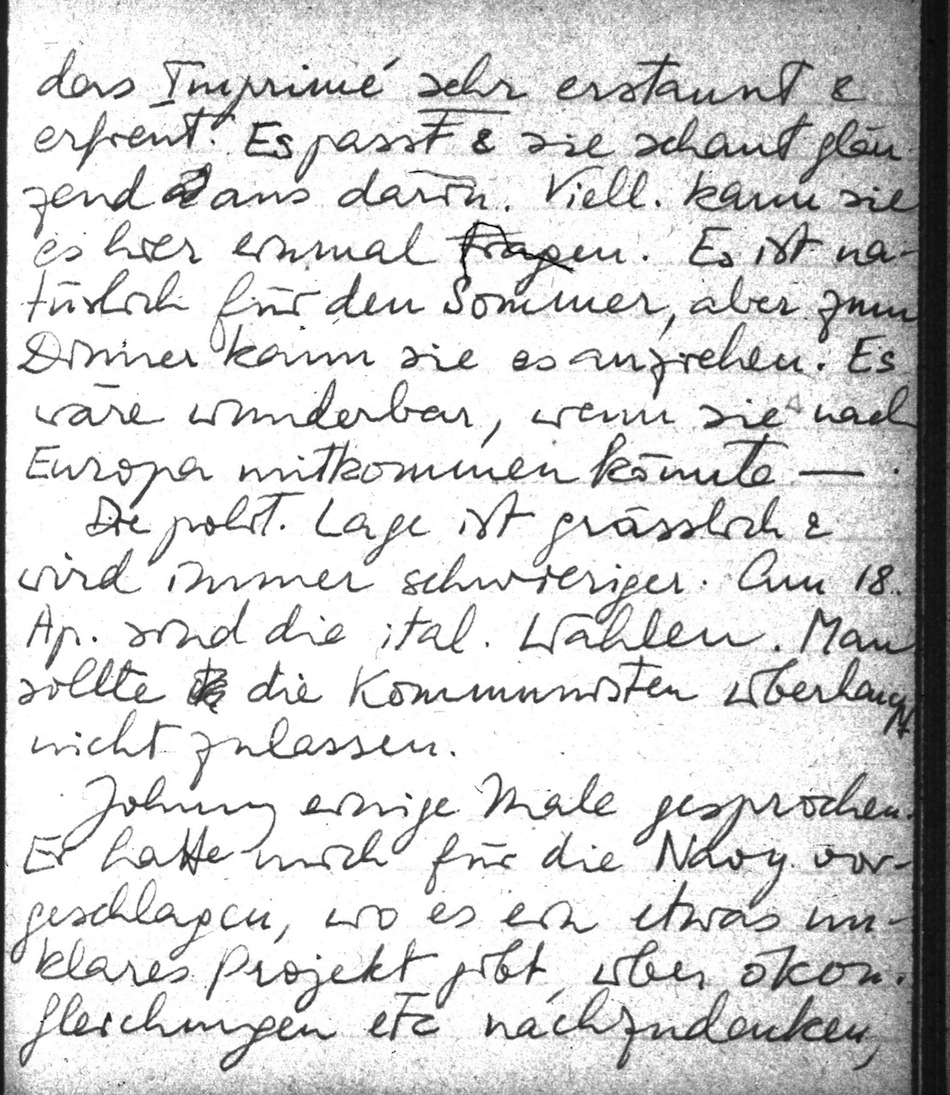 das Imprimé sehr erstaunt &
erfreut. Es passt & sie schaut glän-
zend aus darin. Viell. kann sie
es hier einmal tragen. Es ist na-
türlich für den Sommer, aber zum
Dinner kann sie es anziehen. Es
wäre wunderbar, wenn sie nach
Europa mitkommen könnte — .
Die polit. Lage ist grässlich &
wird immer schwieriger. Am 18.
Ap. sind die ital. Wahlen. Man
sollte die Kommunisten überhaupt
nicht zulassen.
Johnny einige Male gesprochen.
Er hatte mich für die Navy vor-
geschlagen, wo es ein etwas un-
klares Projekt gibt, über ökon.
Gleichungen etc nachzudenken,